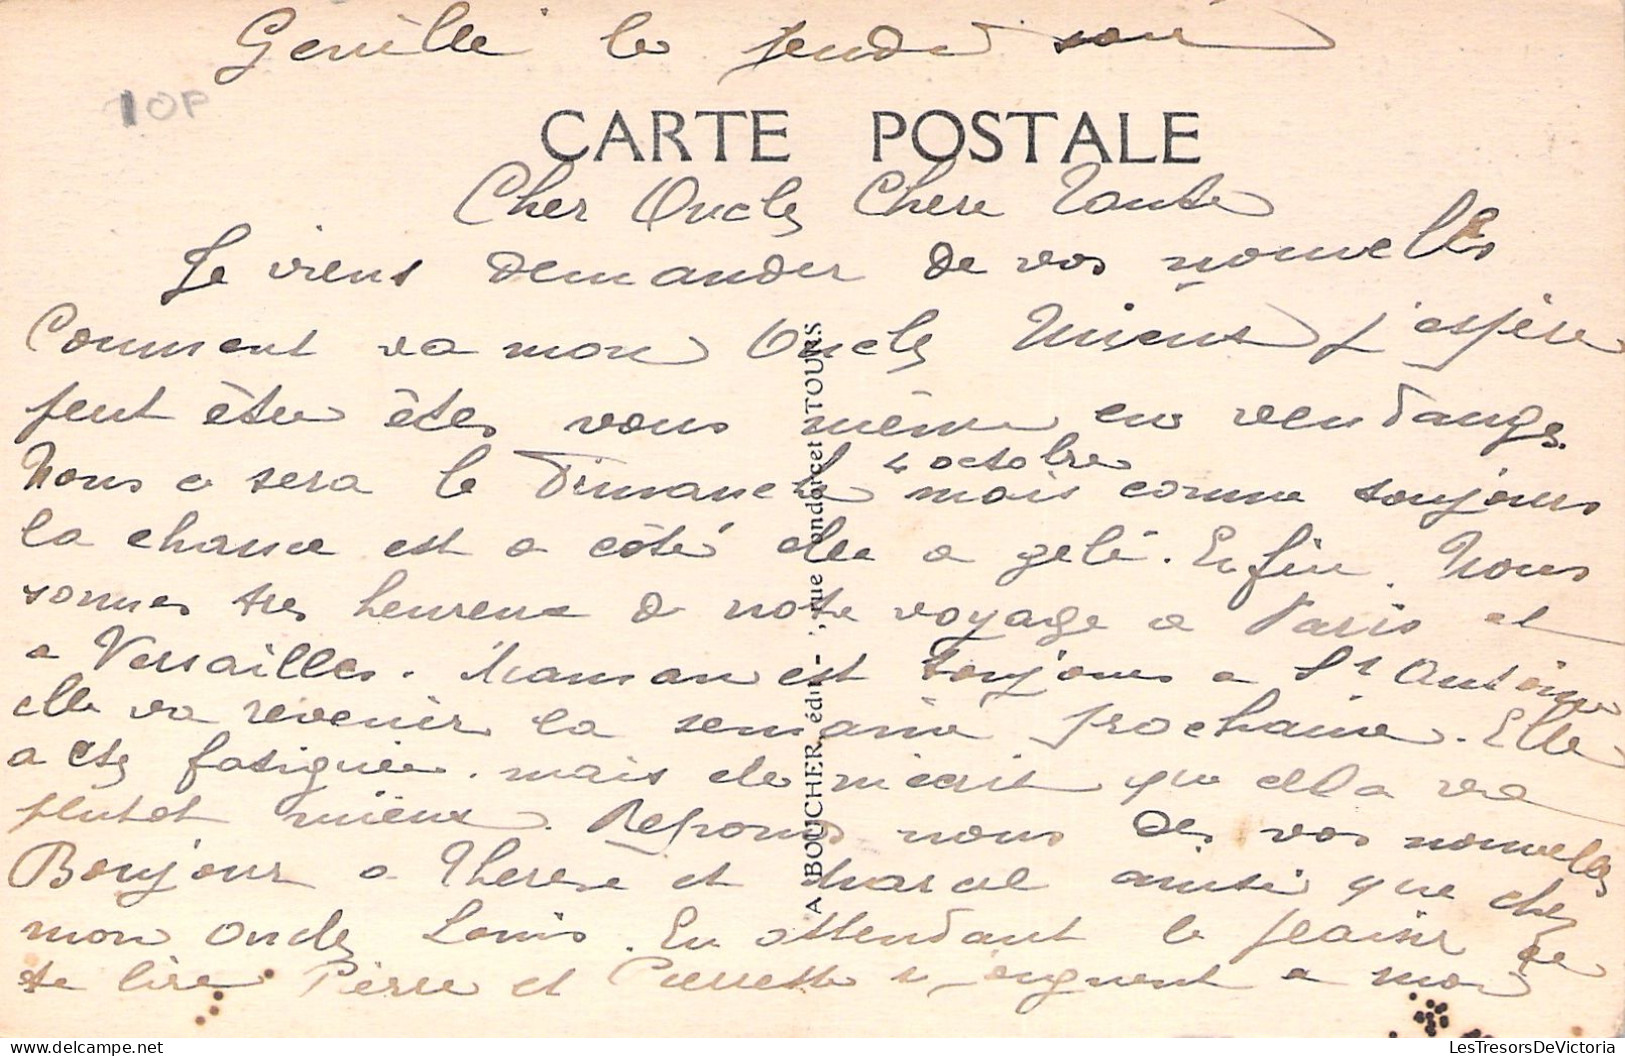 Genillé le jeudi soir
10F
CARTE POSTALE
Cher Oncle Chere Tante
Je viens demander de vos nouvelles
Comment va mon Oncle Mieux j'espère
peut être êtes vous même en vendange.
4 octobre
Nous a sera le Dimanche mais comme toujours
la chasse est a côté elle a gelé. Enfin. Nous
sommes tres heureux de notre voyage a Paris et
a Versailles. Maman est toujours a St Antoine
elle va revenir la semaine prochaine. Elle
a ete fatiguée. mais elle m'ecrit que ella va
plutot mieux. Reponds nous des vos nouvelles
Bonjour a Therese et Marcel ainsi que chez
mon Oncle Louis. En attendant le plaisir de
te lire Pierre et Pierrette se joignent a moi
A BOUCHER, édit - rue Condorcet TOURS
LesTresorsDeVictoria